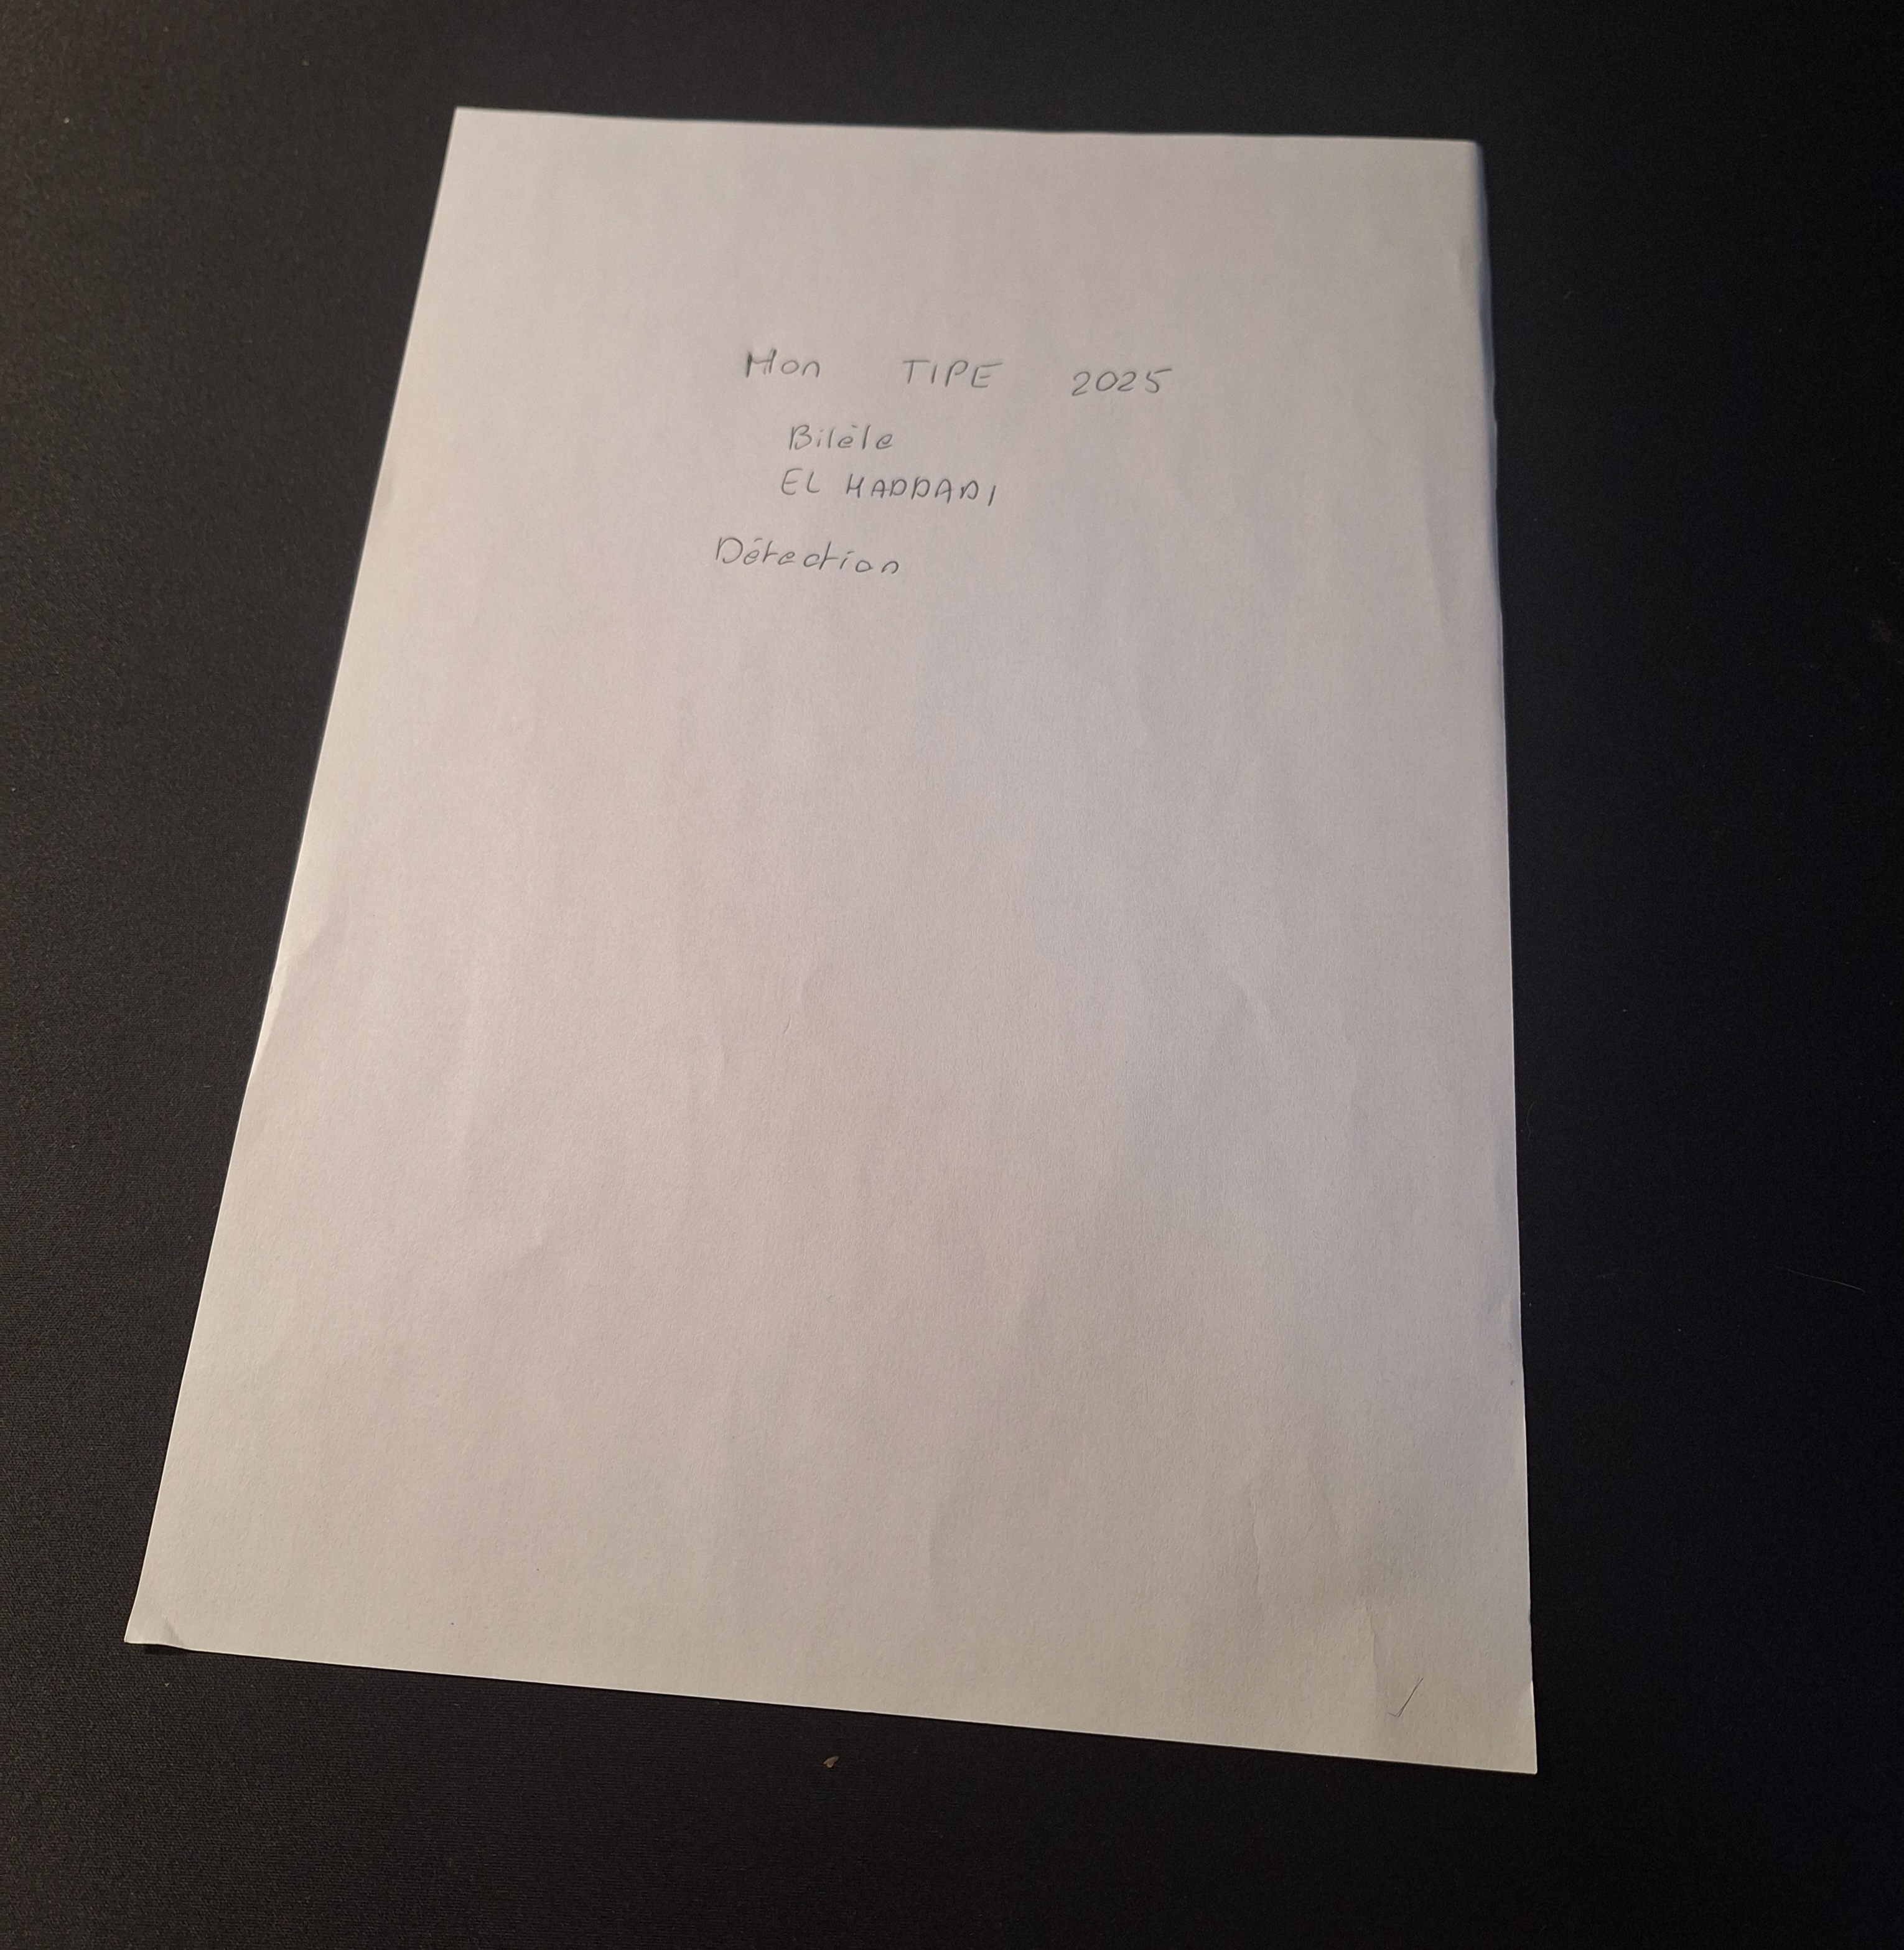 Mon TIPE 2025
Bilèle
EL HADDADI
Détection